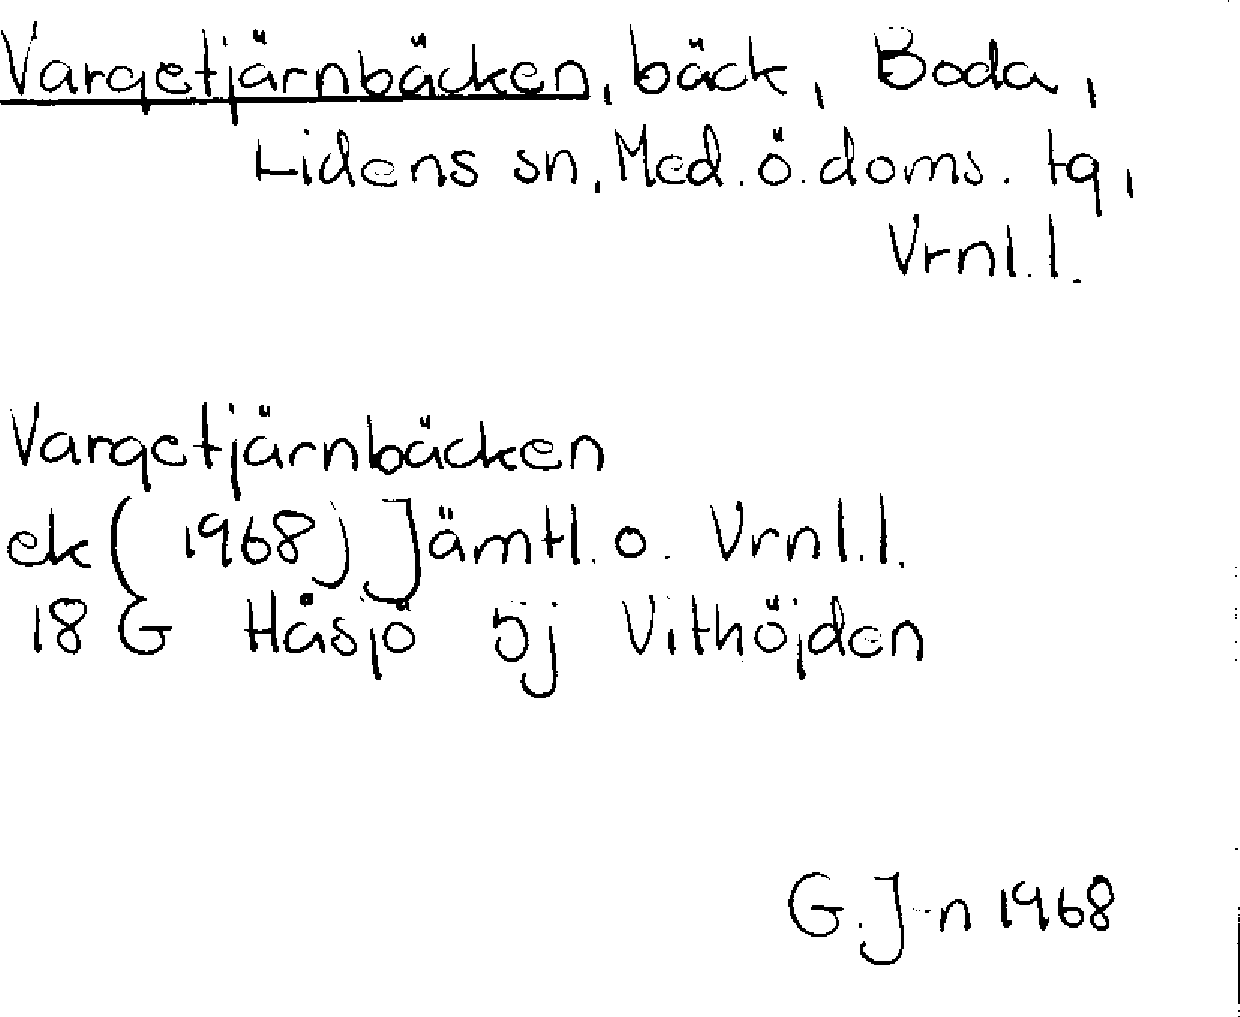 Vargetjärnbäcken, bäck, Boda,
Lidens sn, Med. ö. doms. tg,
Vrnl. l.
Vargetjärnbäcken
ek (1968) Jämtl. o. Vrnl. l.
18 G Håsjö 5j Vithöjden
G. J-n 1968